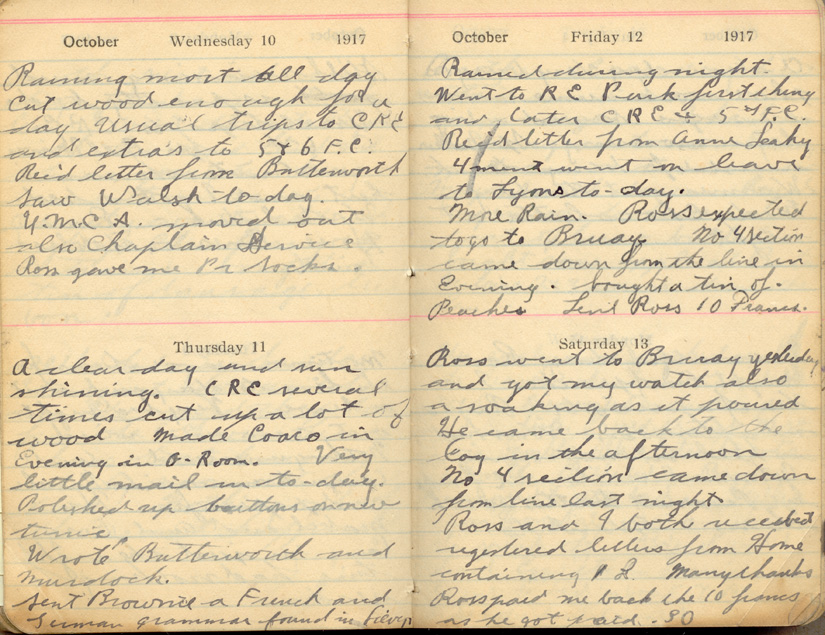 October Wednesday 10 1917
Raining most all day
Cut wood enough for a
day Usual trips to CRE
and extra's to 5 & 6 F.C.
Rec'd letter from Butterworth
Saw Walsh to-day.
Y.M.C.A. moved out
also Chaplain Service
Ross gave me Pr socks.
Thursday 11
A clear day and sun
shining. CRE several
times cut up a lot of
wood Made Cocoa in
Evening in O-Room. Very
little mail in to-day.
Polished up buttons on new
tunic.
Wrote Butterworth and
Murdock.
Sent Brownie a French and
German grammar found in
October Friday 12 1917
Rained during night.
Went to RE Park first thing
and later CRE & 5th F.C.
Rec'd letter from Anne Leahy
4 men went on leave
to Lyons to-day.
More Rain. Ross expected
to go to Bruay No 4 section
came down from the line in
Evening. bought a tin of.
Peaches Lent Ross 10 Francs.
Saturday 13
Ross went to Bruay yesterday
and got my watch also
a soaking as it poured
He came back to the
Coy in the afternoon
No 4 section came down
from line last night
Ross and I both received
registered letters from Home
containing 1 £. Many thanks
Ross paid me back the 10 francs
as he got paid. 30